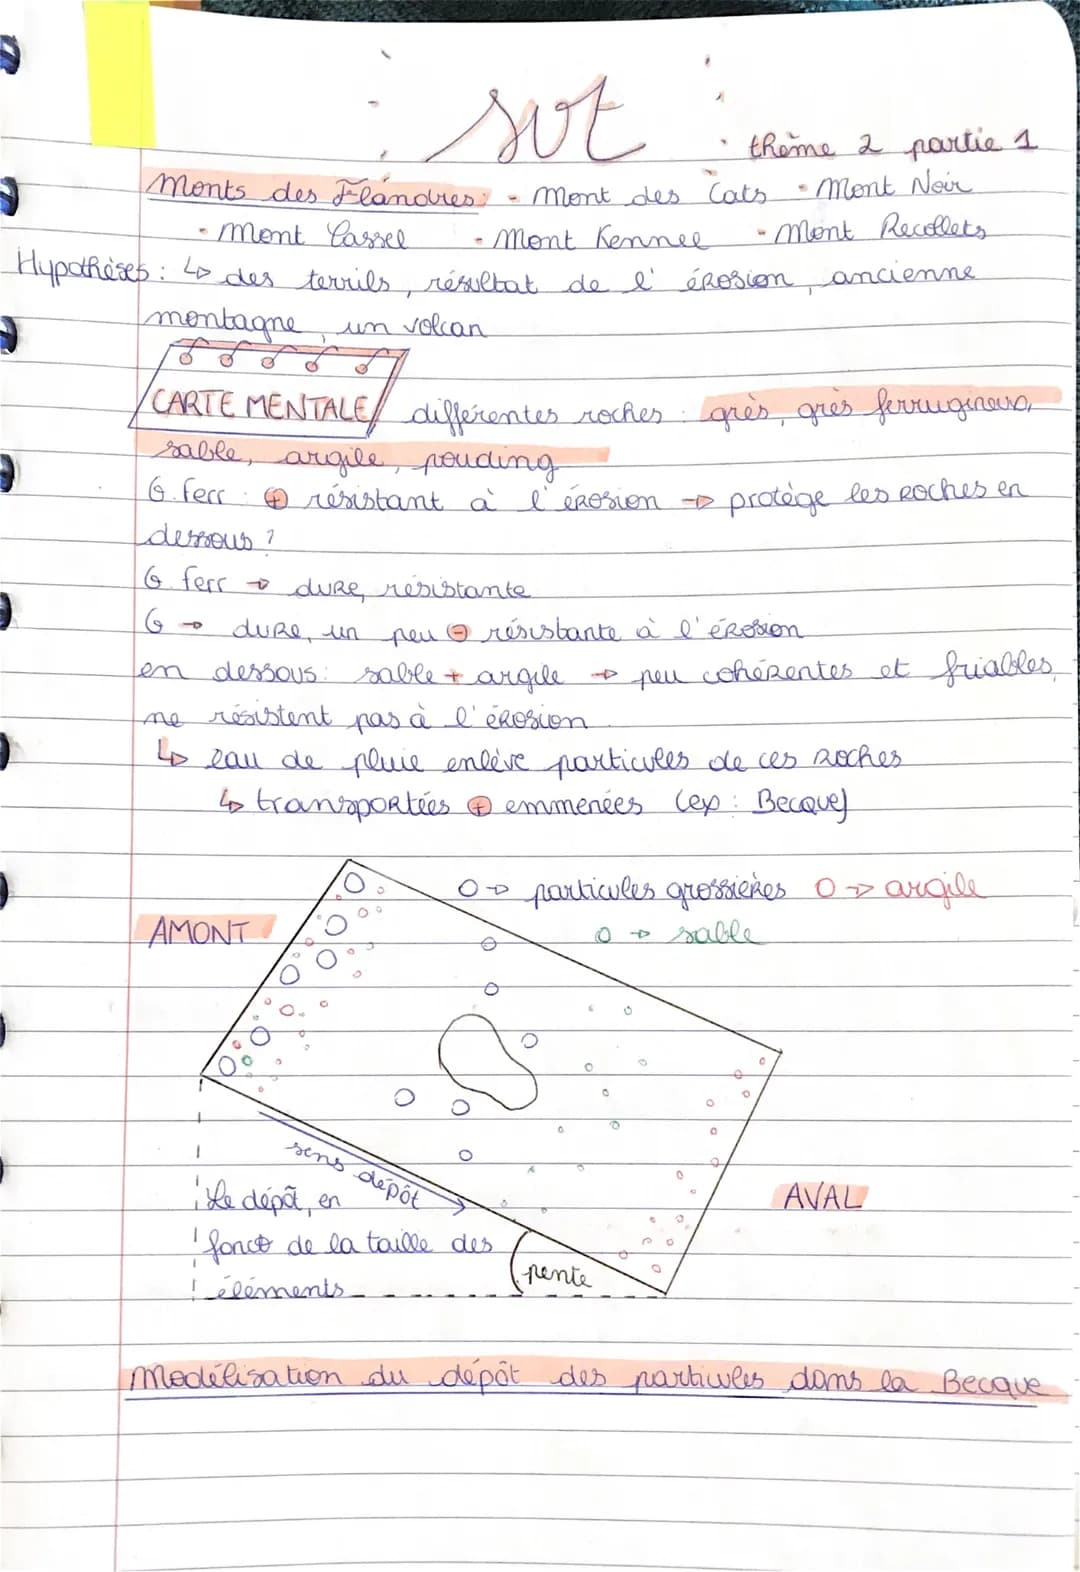 svt
thème 2 partie 1
Monts des Flandres: - Mont des Cats - Mont Noir
- Mont Cassel - Mont Kennee - Mont Recollets
Hypothèses : ↳ des terrils, résultat de l'érosion, ancienne
montagne, un volcan
CARTE MENTALE différentes roches : grès, grès ferrugineux,
sable, argile, pouding
G. ferr : ⊕ résistant à l'érosion → protège les roches en
dessous ?
G. ferr → dure, résistante
G → dure, un peu ⊖ résistante à l'érosion
en dessous : sable + argile → peu cohérentes et friables,
ne résistent pas à l'érosion
↳ eau de pluie enlève particules de ces roches
↳ transportées ⊕ emmenées (ex : Becque)
O → particules grossières O → argile
AMONT
O → sable
sens dépôt
AVAL
Le dépôt, en
fonct° de la taille des
éléments
pente
Modélisation du dépôt des particules dans la Becque